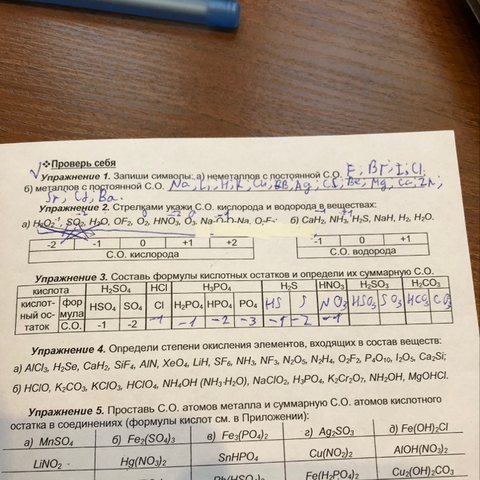 ❖Проверь себя
Упражнение 1. Запиши символы: а) неметаллов с постоянной С.О. F, Br, I, Cl
б) металлов с постоянной С.О. Na, Li, H, K, Cu, Ag, Cs, Be, Mg, Ca, Zn,
Sr, Cd, Ba.
Упражнение 2. Стрелками укажи С.О. кислорода и водорода в веществах:
а) SO2, H2O, OF2, O2, HNO3, O3, б) CaH2, NH3, H2S, NaH, H2, H2O.
-2 -1 0 +1 +2 -1 0 +1
С.О. кислорода С.О. водорода
Упражнение 3. Составь формулы кислотных остатков и определи их суммарную С.О.
кислота H2SO4 HCl H3PO4 H2S HNO3 H2SO3 H2CO3
кислотный остаток формула HSO4 SO4 Cl H2PO4 HPO4 PO4 HS S NO3 HSO3 SO3 HCO3 CO3
С.О. -1 -2 -1 -1 -2 -3 -1 -2 -1
Упражнение 4. Определи степени окисления элементов, входящих в состав веществ:
а) AlCl3, H2Se, CaH2, SiF4, AlN, XeO4, LiH, SF6, NH3, NF3, N2O5, N2H4, O2F2, P4O10, I2O5, Ca2Si;
б) HClO, K2CO3, KClO3, HClO4, NH4OH (NH3·H2O), NaClO2, H3PO4, K2Cr2O7, NH2OH, MgOHCl.
Упражнение 5. Проставь С.О. атомов металла и суммарную С.О. атомов кислотного
остатка в соединениях (формулы кислот см. в Приложении):
а) MnSO4 б) Fe2(SO4)3 в) Fe3(PO4)2 г) Ag2SO3 д) Fe(OH)2Cl
LiNO2 Hg(NO3)2 SnHPO4 Cu(NO2)2 AlOH(NO3)2
Fe(H2PO4)2 Cu2(OH)2CO3